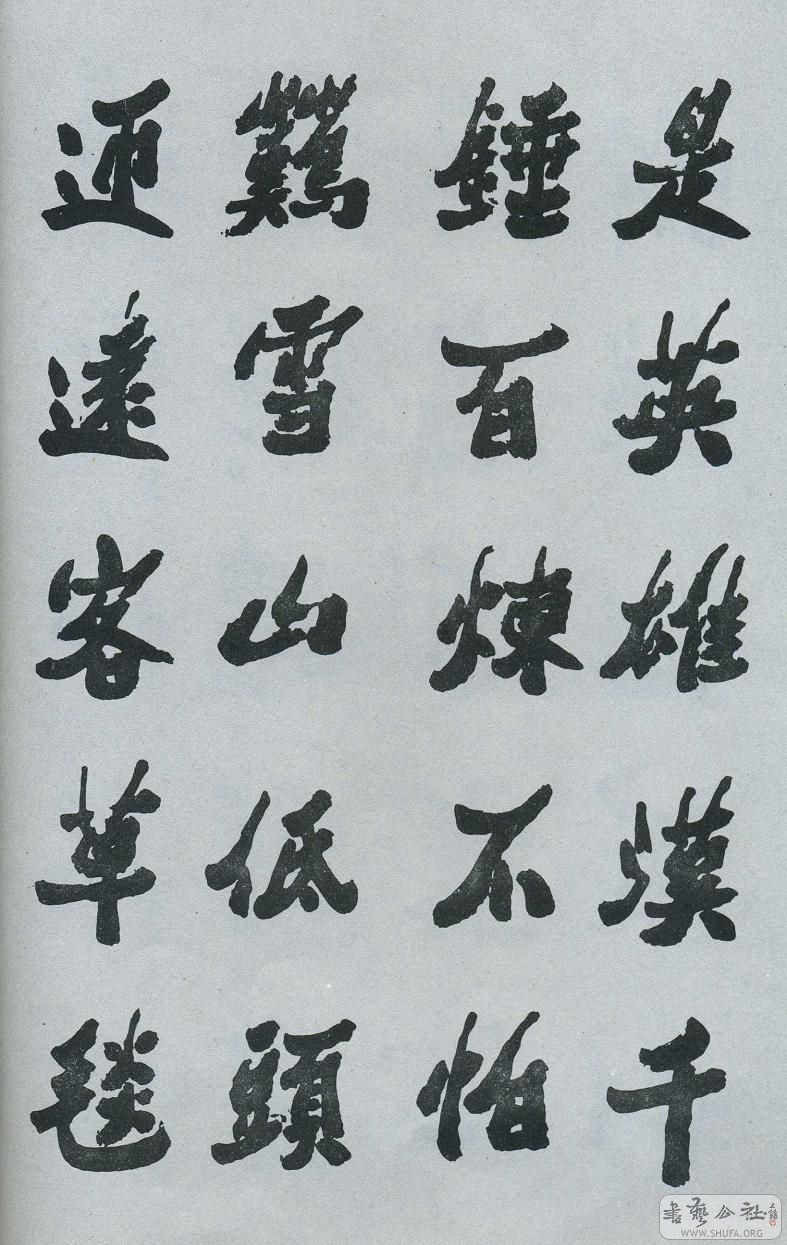 是英雄漢千
錘百煉不怕
難雪山低頭
迎遠客草毯
書藝公社
WWW.SHUFA.ORG